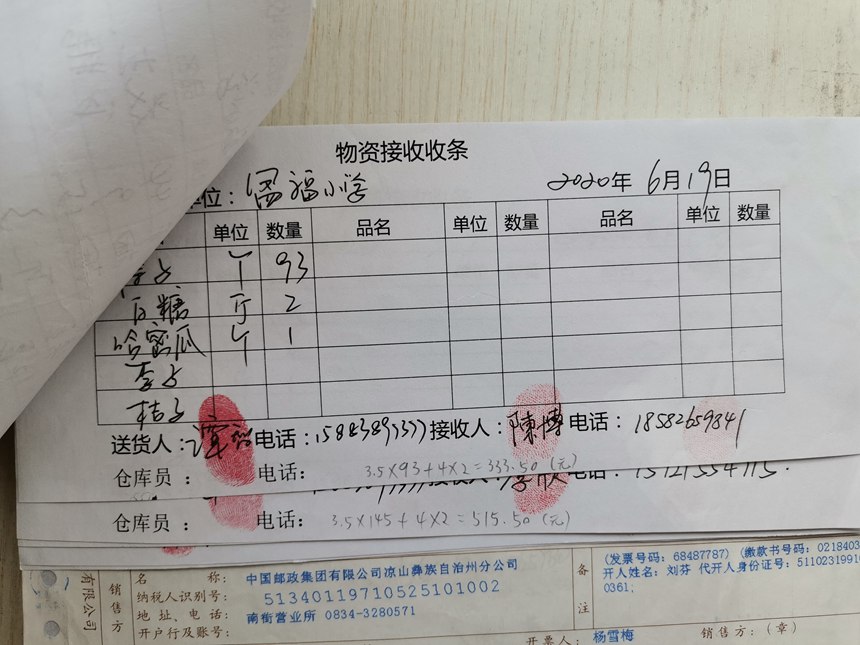 物资接收收条
位：福小学 2020年 6月19日
单位 数量 品名 单位 数量 品名 单位 数量
个 93
白糖 斤 2
哈密瓜 个 1
李子
桔子
送货人： 电话： 接收人：陳博 电话：18582659841
仓库员： 电话： 3.5×93+4×2=333.50（元）
仓库员： 电话： 3.5×145+4×2=515.50（元）
有限公司
销售方
名 称： 中国邮政集团有限公司凉山彝族自治州分公司
纳税人识别号： 51340119710525101002
地址、电话： 南街营业所 0834-3280571
开户行及账号：
备注
(发票号码：68487787) (缴款书号码：0218403
开人姓名：刘芬 代开人身份证号：5110231991
0361;
开票人： 杨雪梅 销售方：（章）